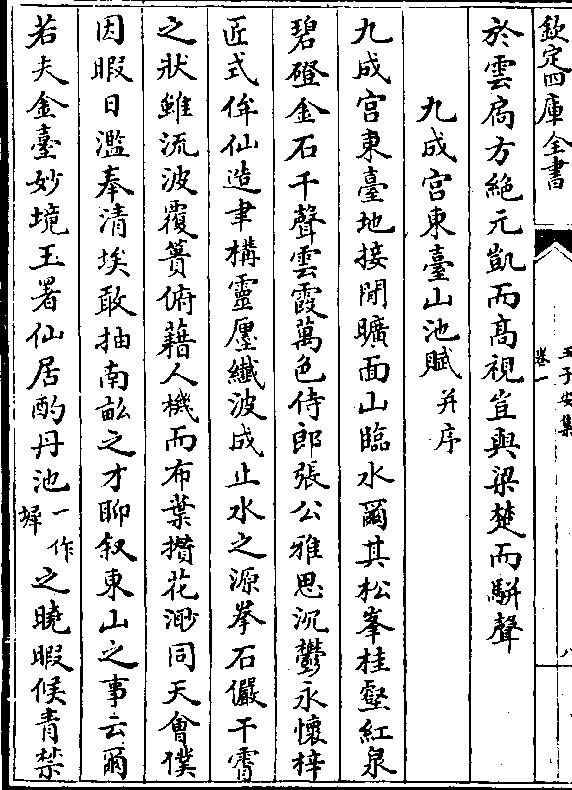 欽定四庫全書
王子安集
卷一
八
於雲扄方絶元凱而髙視豈與梁楚而駢聲
九成宫東臺山池賦并序
九成宫東臺地接閒曠面山臨水爾其松峯桂壑紅泉
碧磴金石千聲雲霞萬色侍郎張公雅思沉鬱永懷梓
匠式侔仙造聿構靈㕓纎波成止水之源拳石儼干霄
之狀雖流波覆簣俯藉人機而布葉攢花渺同天會僕
因暇日濫奉清埃敢抽南畝之才聊叙東山之事云爾
若夫金臺妙境玉署仙居酌丹池一作墀之曉暇候青禁